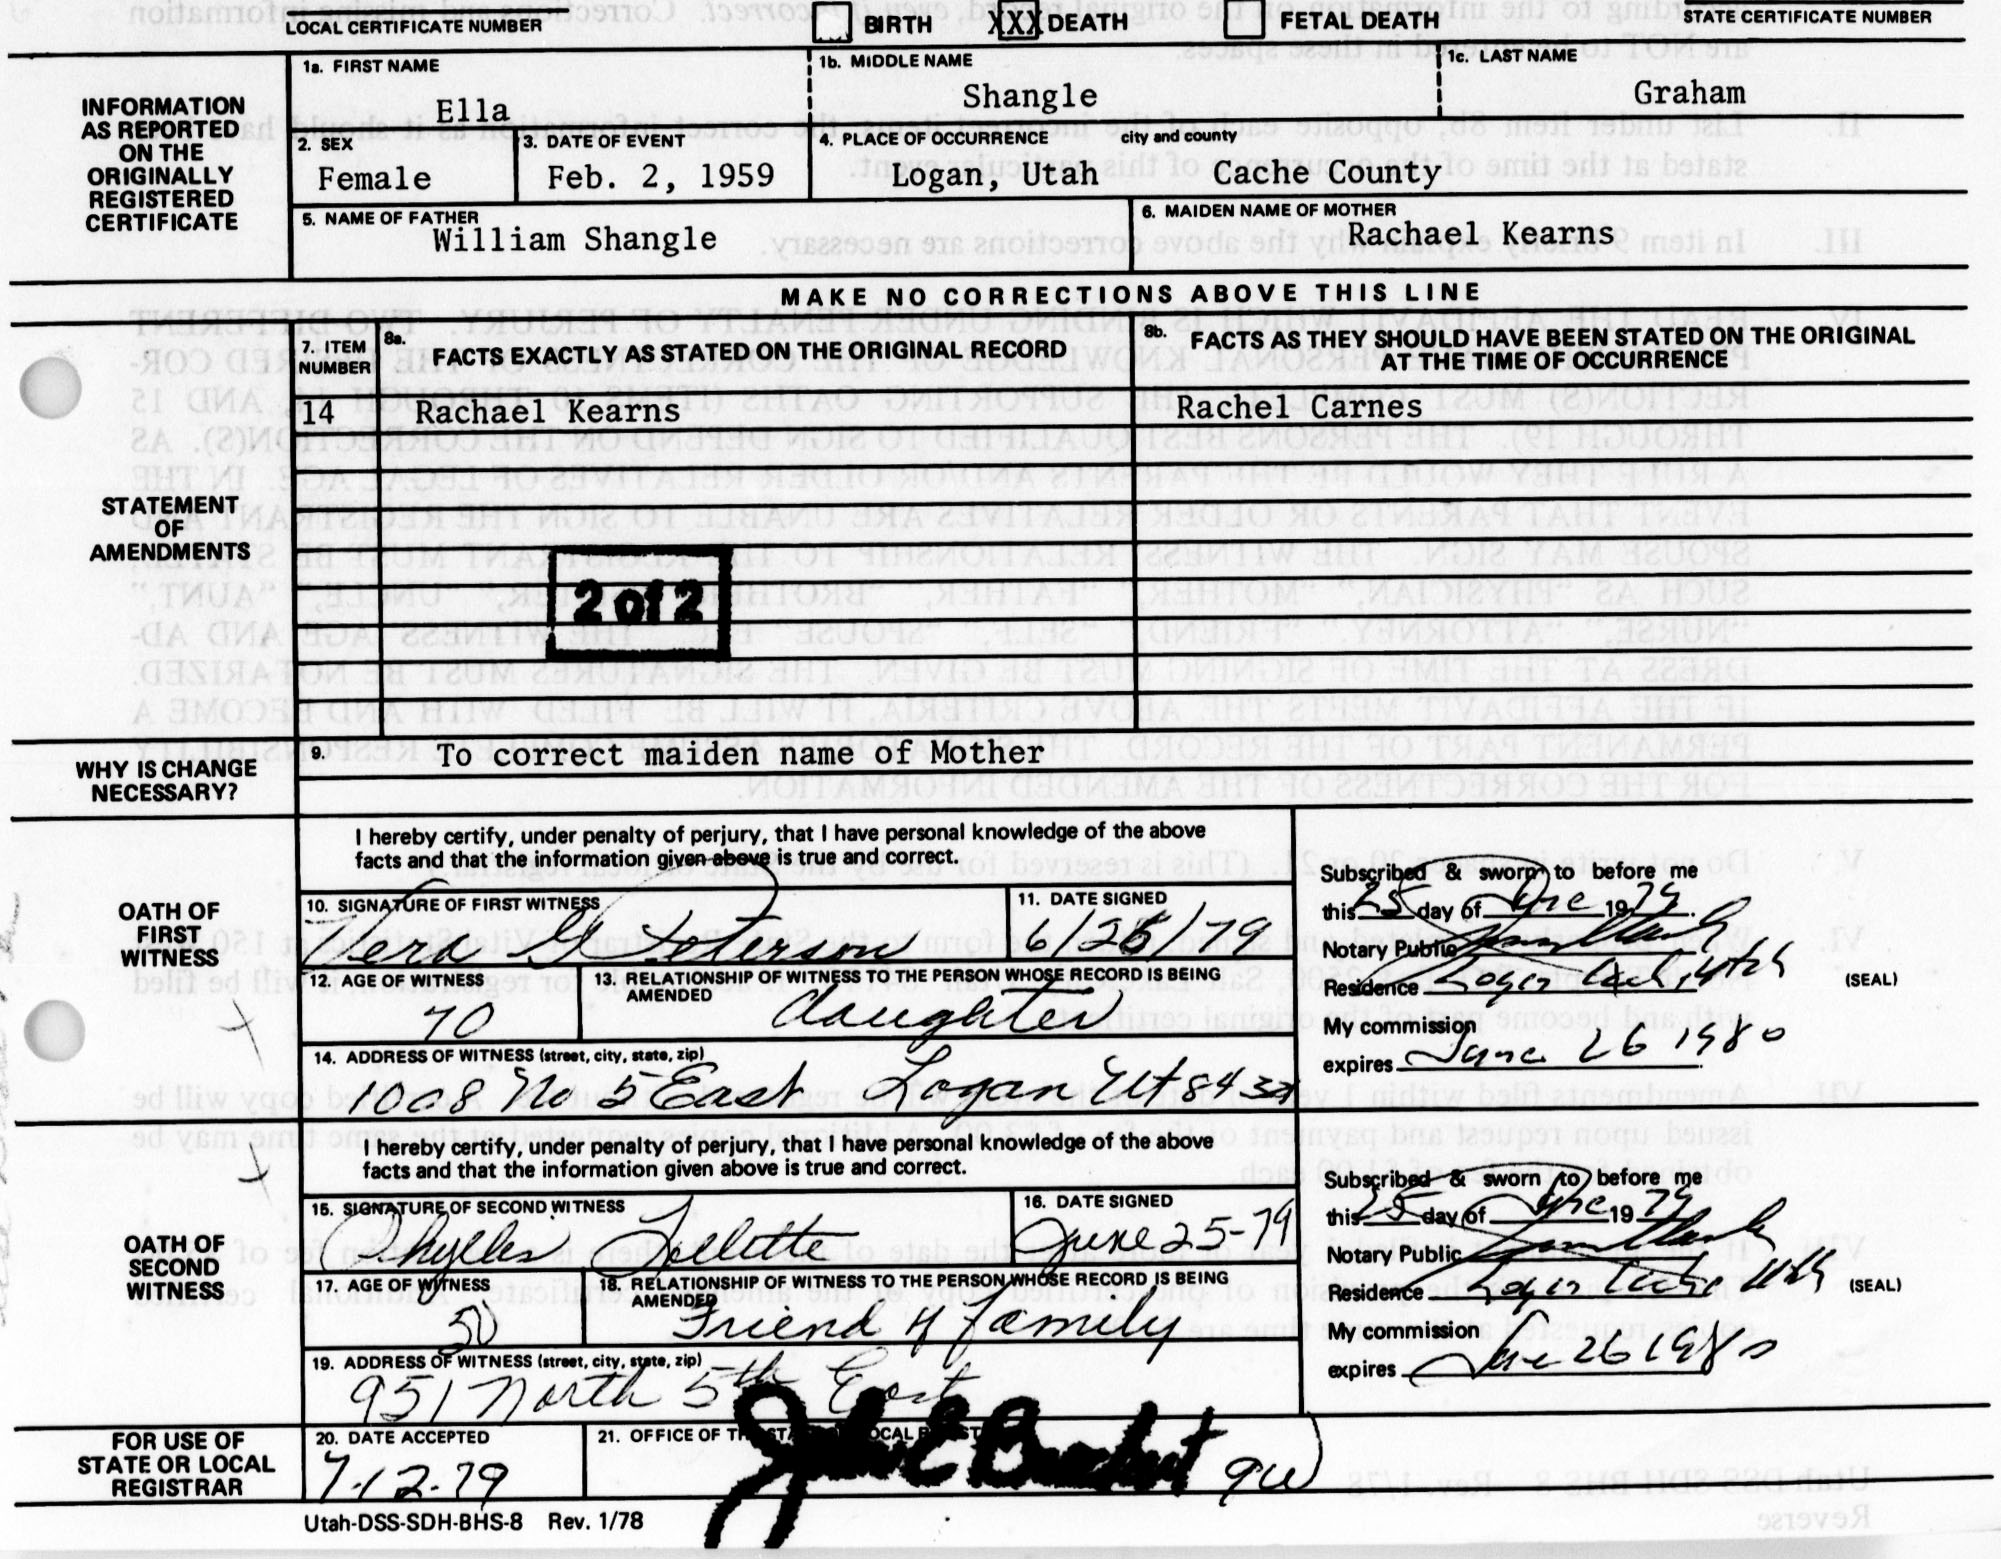 LOCAL CERTIFICATE NUMBER BIRTH XXX DEATH FETAL DEATH STATE CERTIFICATE NUMBER
INFORMATION AS REPORTED ON THE ORIGINALLY REGISTERED CERTIFICATE
1a. FIRST NAME 1b. MIDDLE NAME 1c. LAST NAME
Ella Shangle Graham
2. SEX 3. DATE OF EVENT 4. PLACE OF OCCURRENCE city and county
Female Feb. 2, 1959 Logan, Utah Cache County
5. NAME OF FATHER 6. MAIDEN NAME OF MOTHER
William Shangle Rachael Kearns
MAKE NO CORRECTIONS ABOVE THIS LINE
STATEMENT OF AMENDMENTS
7. ITEM NUMBER 8a. FACTS EXACTLY AS STATED ON THE ORIGINAL RECORD 8b. FACTS AS THEY SHOULD HAVE BEEN STATED ON THE ORIGINAL
AT THE TIME OF OCCURRENCE
14 Rachael Kearns Rachel Carnes
2 of 2
WHY IS CHANGE NECESSARY?
9. To correct maiden name of Mother
OATH OF FIRST WITNESS
I hereby certify, under penalty of perjury, that I have personal knowledge of the above
facts and that the information given above is true and correct.
10. SIGNATURE OF FIRST WITNESS 11. DATE SIGNED
Vera G Peterson 6/25/79
12. AGE OF WITNESS 13. RELATIONSHIP OF WITNESS TO THE PERSON WHOSE RECORD IS BEING
AMENDED
70 daughter
14. ADDRESS OF WITNESS (street, city, state, zip)
1008 No 5 East Logan Ut 84321
Subscribed & sworn to before me
this 25 day of June 1979
Notary Public
Residence Logan Cache Utah (SEAL)
My commission
expires June 26 1980
OATH OF SECOND WITNESS
I hereby certify, under penalty of perjury, that I have personal knowledge of the above
facts and that the information given above is true and correct.
15. SIGNATURE OF SECOND WITNESS 16. DATE SIGNED
Phyllis June 25-79
17. AGE OF WITNESS 18. RELATIONSHIP OF WITNESS TO THE PERSON WHOSE RECORD IS BEING
AMENDED
50 Friend of family
19. ADDRESS OF WITNESS (street, city, state, zip)
951 North 5th East
Subscribed & sworn to before me
this 25 day of June 1979
Notary Public
Residence Logan Cache Utah (SEAL)
My commission
expires June 26 1980
FOR USE OF STATE OR LOCAL REGISTRAR
20. DATE ACCEPTED 21. OFFICE OF
7-12-79 John E Brockert
Utah-DSS-SDH-BHS-8 Rev. 1/78